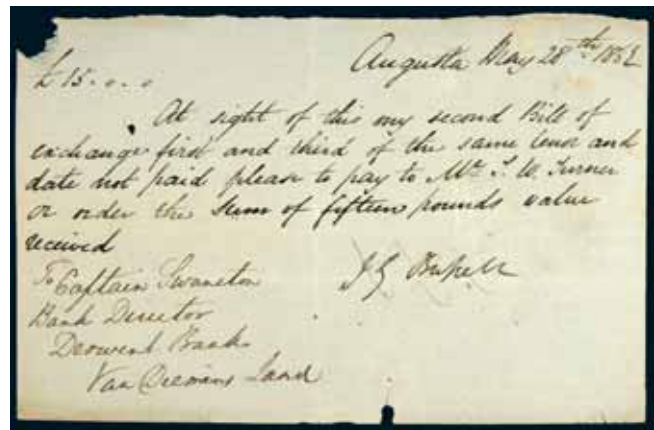 Augusta May 28th
£ 15 . . .
At sight of this my second Bill of
exchange first and third of the same tenor and
date not paid please to pay to Mr. W. Turner
or order the sum of fifteen pounds value
received
To Captain Swanston
Bank Director
Derwent Bank
Van Diemans Land